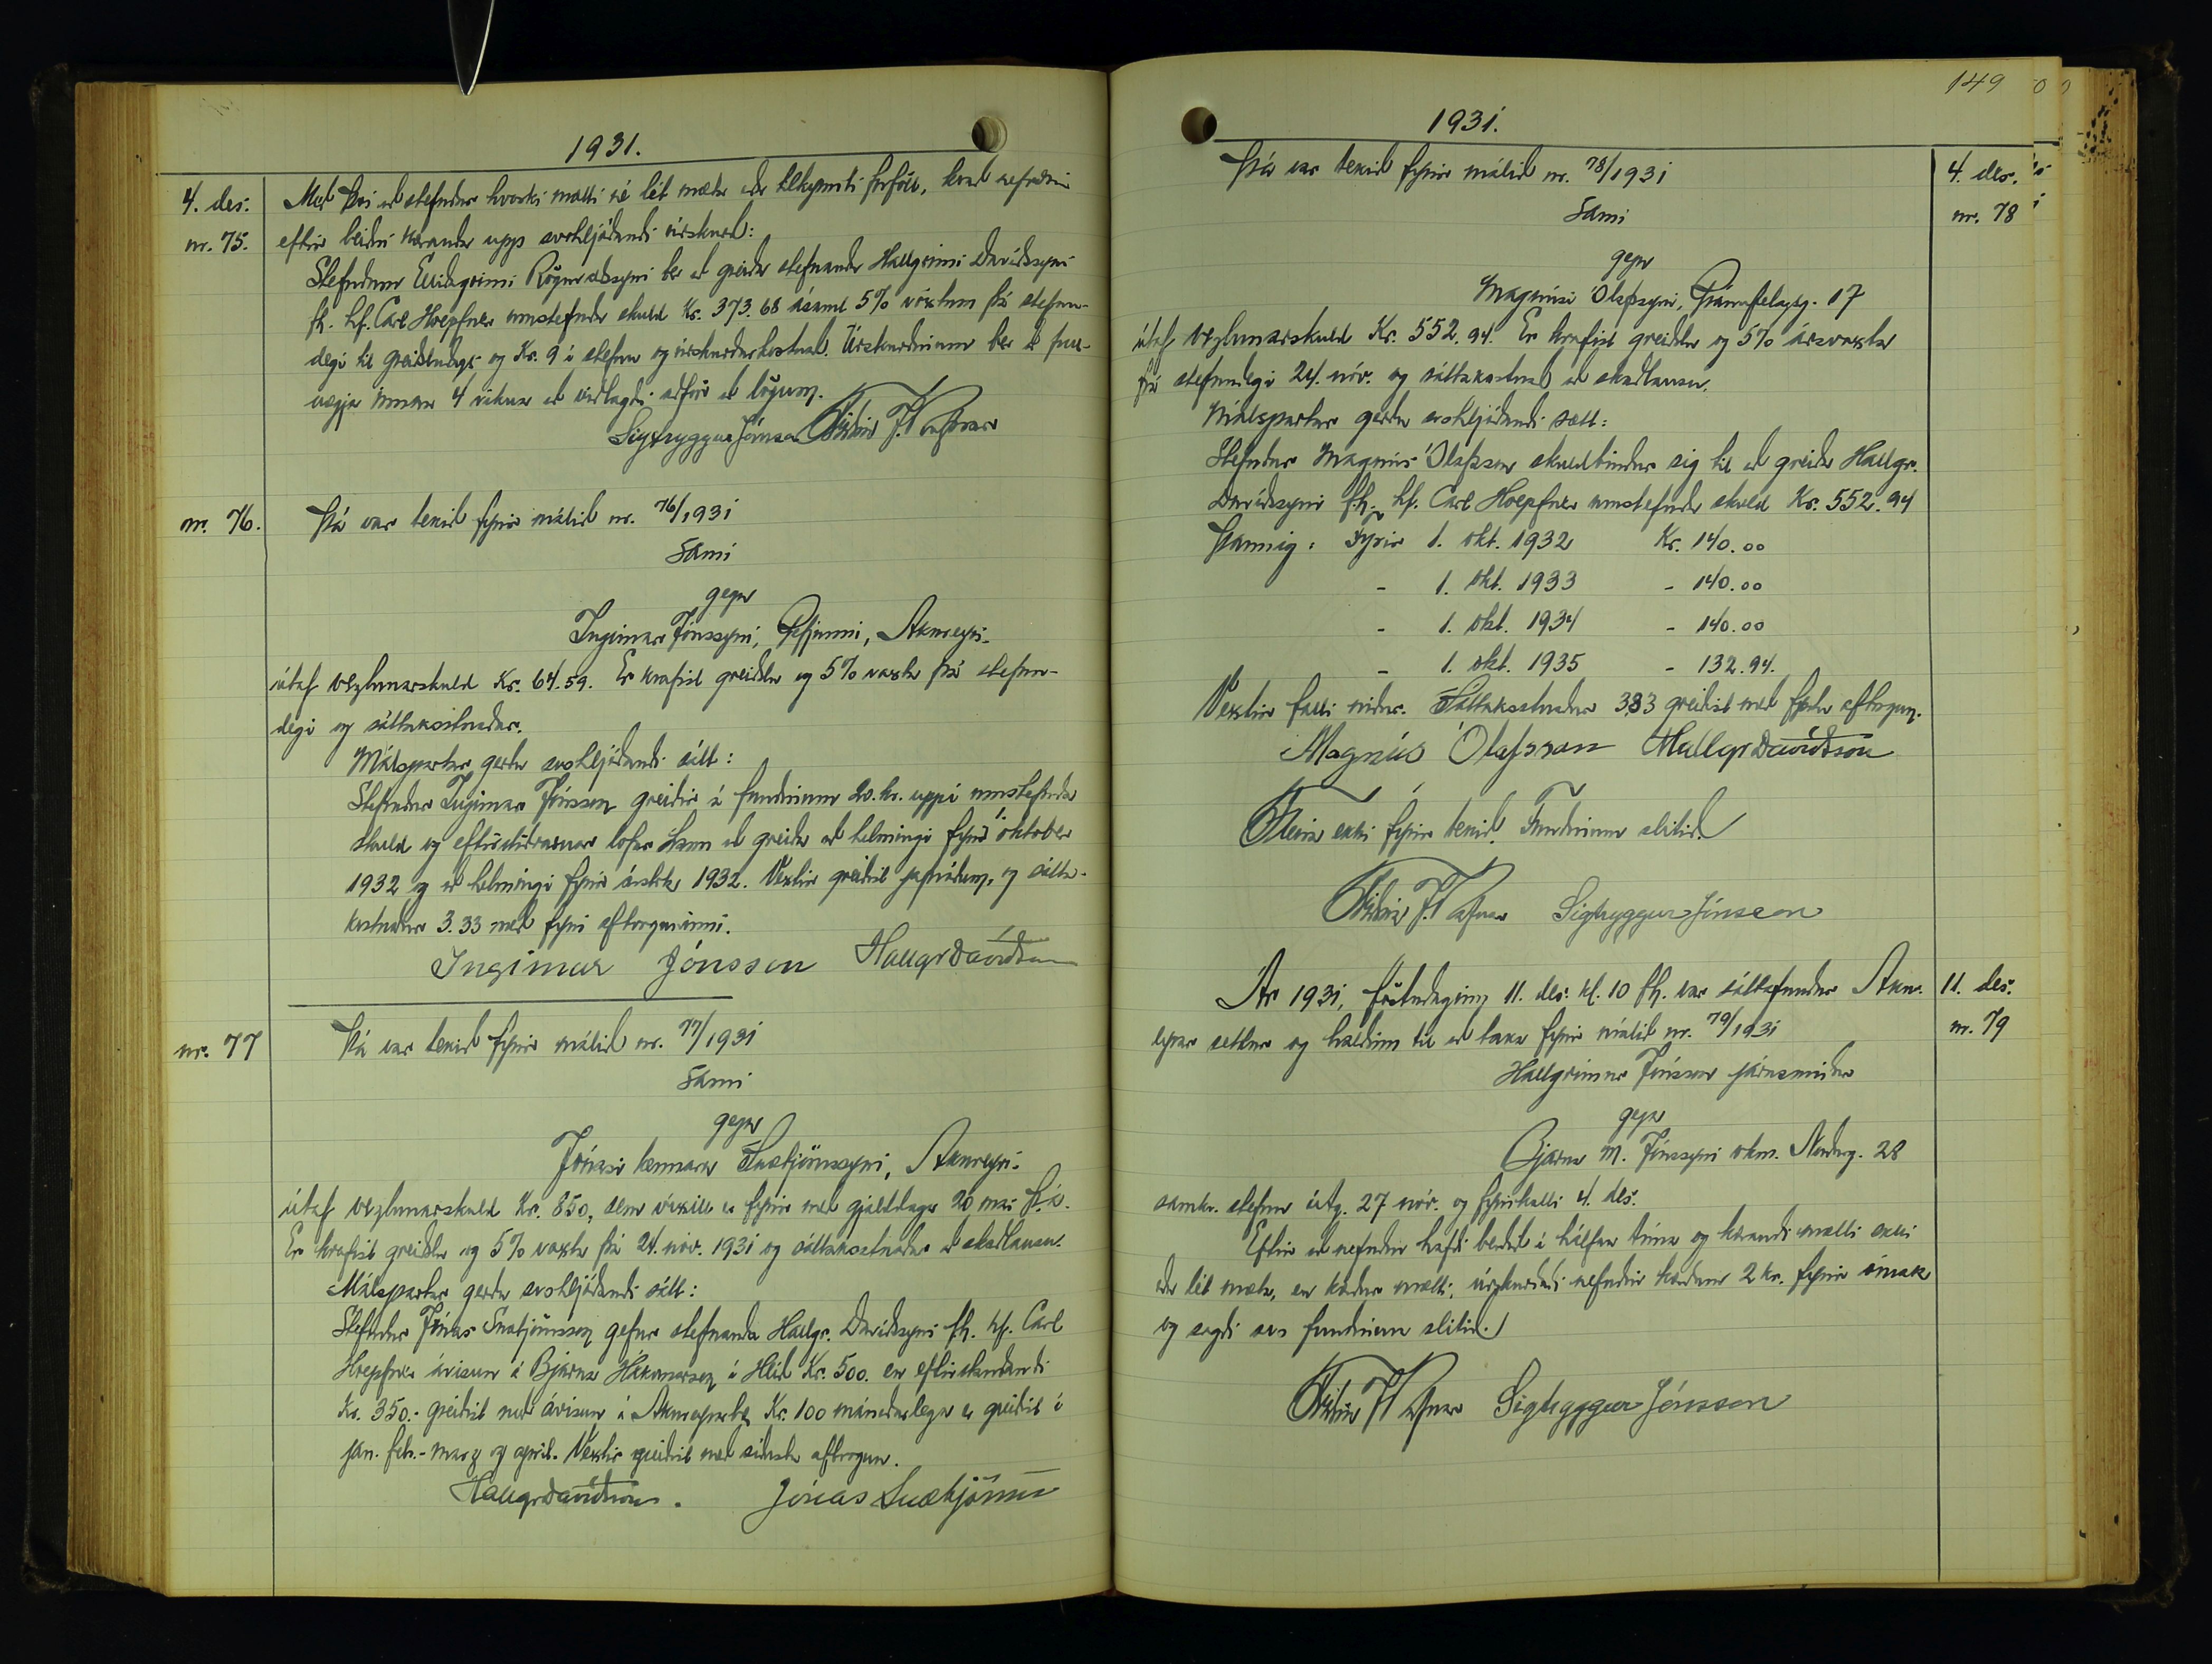 1931.
4. des.
nr. 75.
Með því að stefndur hvorki mætti né lét mæta eða tilkynnti forföll, kvað nefndin
eftir beiðni kæranda upp svohljóðandi úrskurð:
Stefndum Elidagrimi Rögnvaldssyni ber að greiða stefnanda Hallgrími Davíðssyni
fh. hf. Carl Hoepfner umstefnda skuld Kr. 373.68 ásamt 5% vöxtum frá stefnu-
degi til greiðsludags og Kr. 9 í stefnu og úrskurðarkostnað. Úrskurðinum ber að full-
nægja innan 4 vikna að viðlagðri aðför að lögum.
Sigtryggur Jónsson Friðrik J. Rafnar
nr. 76.
Þá var tekið fyrir málið nr. 76/1931
Sami
gegn
Ingimar Jónssyni, Gefjunni, Akureyri
útaf verzlunarskuld Kr. 64.59. Er krafist greiðslu og 5% vaxta frá stefnu-
degi og sáttakostnaðar.
Málspartar gerðu svohljóðandi sátt:
Stefndur Ingimar Jónsson greiðir á fundinum 20. kr. uppí umstefnda
skuld og eftirstöðvarnar lofar hann að greiða að helmingi fyrir 1. október
1932 og að helmingi fyrir árslok 1932. Vextir greiðist jafnóðum, og sátta-
kostnaður 3.33 með fyrri afborguninni.
Ingimar Jónsson HallgrDavíðsson
nr. 77
Þá var tekið fyrir málið nr. 77/1931
Sami
gegn
Jónasi kennara Snæbjörnssyni, Akureyri
útaf verzlunarskuld Kr. 850, sem víxill er fyrir með gjalddaga 20 maí þ.á.
Er krafist greiðslu og 5% vaxta frá 24. nóv. 1931 og sáttakostnaðar að skaðlausu.
Málspartar gerðu svohljóðandi sátt:
Stefndur Jónas Snæbjörnsson gefur stefnanda Hallgr. Davíðssyni fh. hf. Carl
Hoepfner ávísun á Bjarna Hákonarson í Hlíð Kr. 500. en eftirstandandi
Kr. 350.- greiðist með ávísun á Akureyrarbæ Kr. 100 mánaðarlega er greiðist í
jan. feb.- marz og apríl. Vextir greiðist með síðustu afborgun.
HallgrDavíðsson. Jónas Snæbjörnsson
149
1931.
4. des.
nr. 78
Þá var tekið fyrir málið nr. 78/1931
Sami
gegn
Magnúsi Ólafssyni, Gránufélagsg. 17
útaf verzlunarskuld Kr. 552.94. Er krafist greiðslu og 5% ársvaxta
frá stefnudegi 24. nóv. og sáttakostnað að skaðlausu.
Málspartar gerðu svohljóðandi sátt:
Stefndur Magnús Ólafsson skuldbindur sig til að greiða Hallgr.
Davíðssyni f.h. hf. Carl Hoepfner umstefnda skuld Kr. 552.94
þannig: Fyrir 1. okt. 1932 Kr. 140.00
- 1. okt. 1933 - 140.00
- 1. okt. 1934 - 140.00
- 1. okt. 1935 - 132.94.
Vextir falli niður. Sáttakostnaður 3.83 greiðist með fyrstu afborgun.
Magnús Ólafsson HallgrDavíðsson
Fleira ekki fyrir tekið. Fundinum slitið.
Friðrik J. Rafnar Sigtryggur Jónsson
11. des.
nr. 79
Ár 1931, föstudaginn 11. des. kl. 10 fh. var sáttafundur Akur-
eyrar settur og haldinn til að taka fyrir málið nr. 79/1931
Hallgrímur Jónsson járnsmiður
gegn
Bjarna M. Jónssyni vkm. Norðurg. 28
samkv. stefnu útg. 27 nóv. og fyrirkalli 4. des.
Eftir að nefndin hafði beðið í hálfan tíma og kærandi mætti ekki
eða lét mæta, en kærður mætti, úrskurðaði nefndin kærðum 2 kr. fyrir ómak
og sagði svo fundinum slitið.
Friðrik J. Rafnar Sigtryggur Jónsson